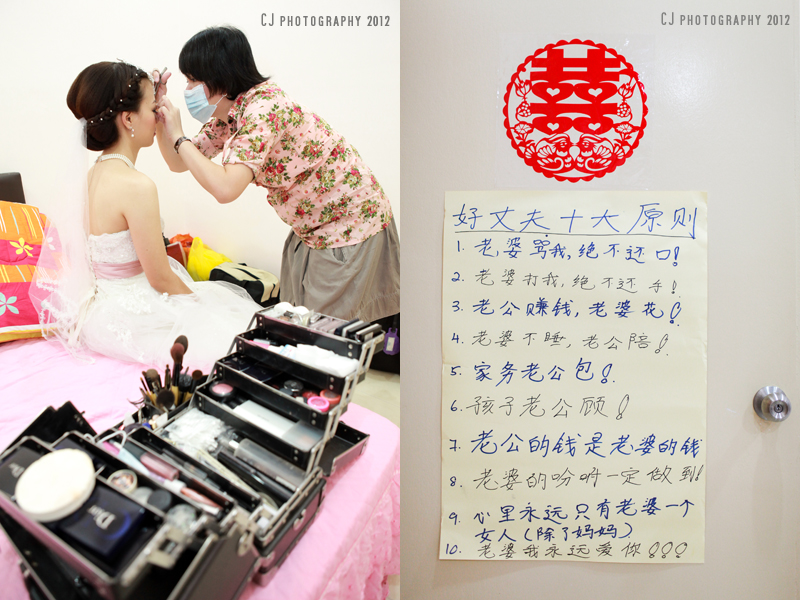 CJ PHOTOGRAPHY 2012
CJ PHOTOGRAPHY 2012
囍
好丈夫十大原则
1. 老婆骂我,绝不还口!
2. 老婆打我,绝不还手!
3. 老公赚钱,老婆花!
4. 老婆不睡,老公陪!
5. 家务老公包!
6. 孩子老公顾!
7. 老公的钱是老婆的钱
8. 老婆的吩咐一定做到!
9. 心里永远只有老婆一个
女人(除了妈妈)
10. 老婆我永远爱你!!!
Dior